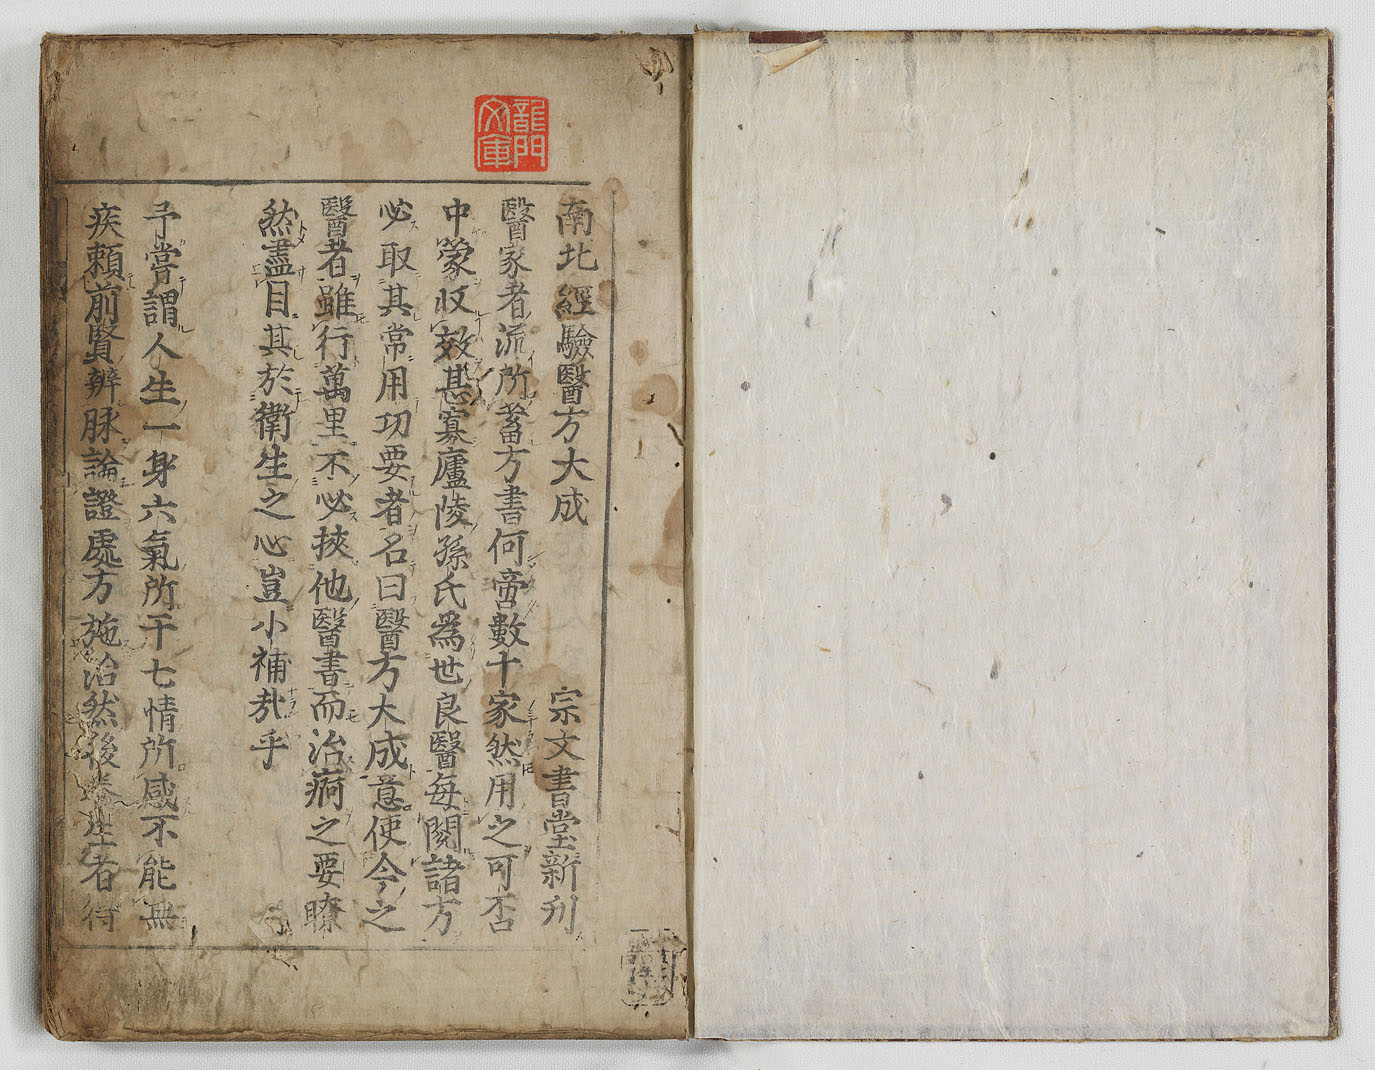 龍門文庫
南北經驗醫方大成 宗文書堂新刋
醫家者流所蓄方書何啻數十家然用之可否
中蒙收效甚寡廬陵孫氏爲世良醫每閱諸方
必取其常用切要者名曰醫方大成意使今之
醫者雖行萬里不必挾他醫書而治病之要瞭
然盡目其於衛生之心豈小補㢤乎
予嘗謂人生一身六氣所干七情所感不能無
疾頼前賢辨脉論證處方施治然後養生者得